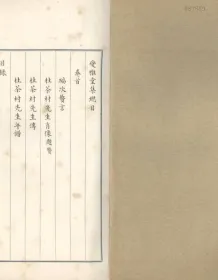 變雅堂集總目
卷首
編次贅言
杜茶村先生肖像題贊
杜茶村先生傳
杜茶村先生年譜
目錄